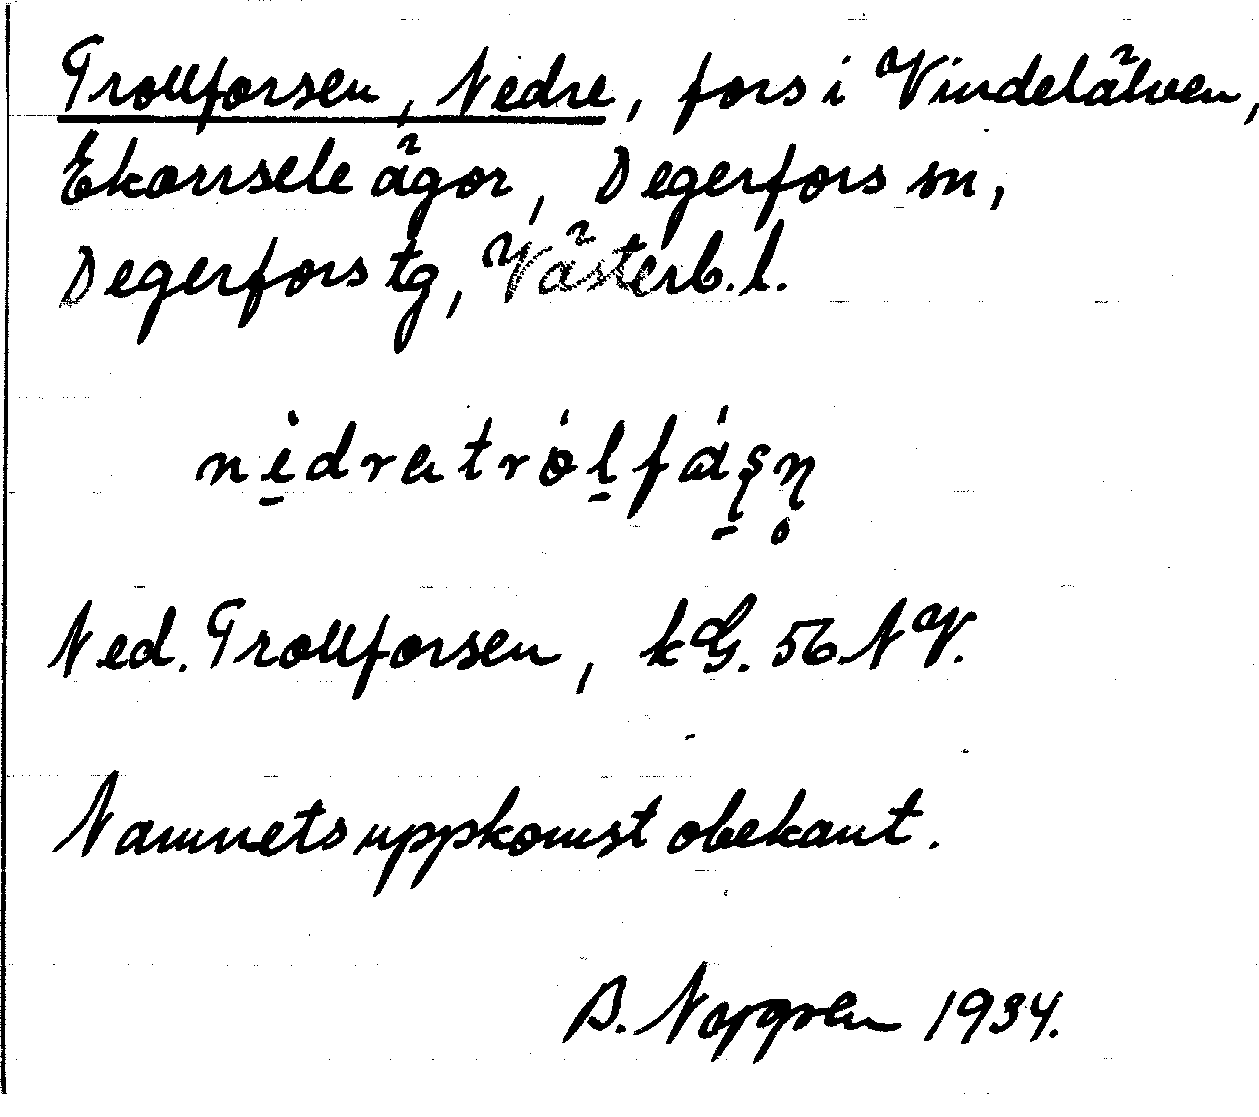 Trollforsen, Nedre, fors i Vindelälven,
Ekorrsele ägor, Degerfors sn,
Degerfors tg, Västerb. l.
Ned. Trollforsen, kG. 56 NV.
Namnets uppkomst obekant.
B. 1934.